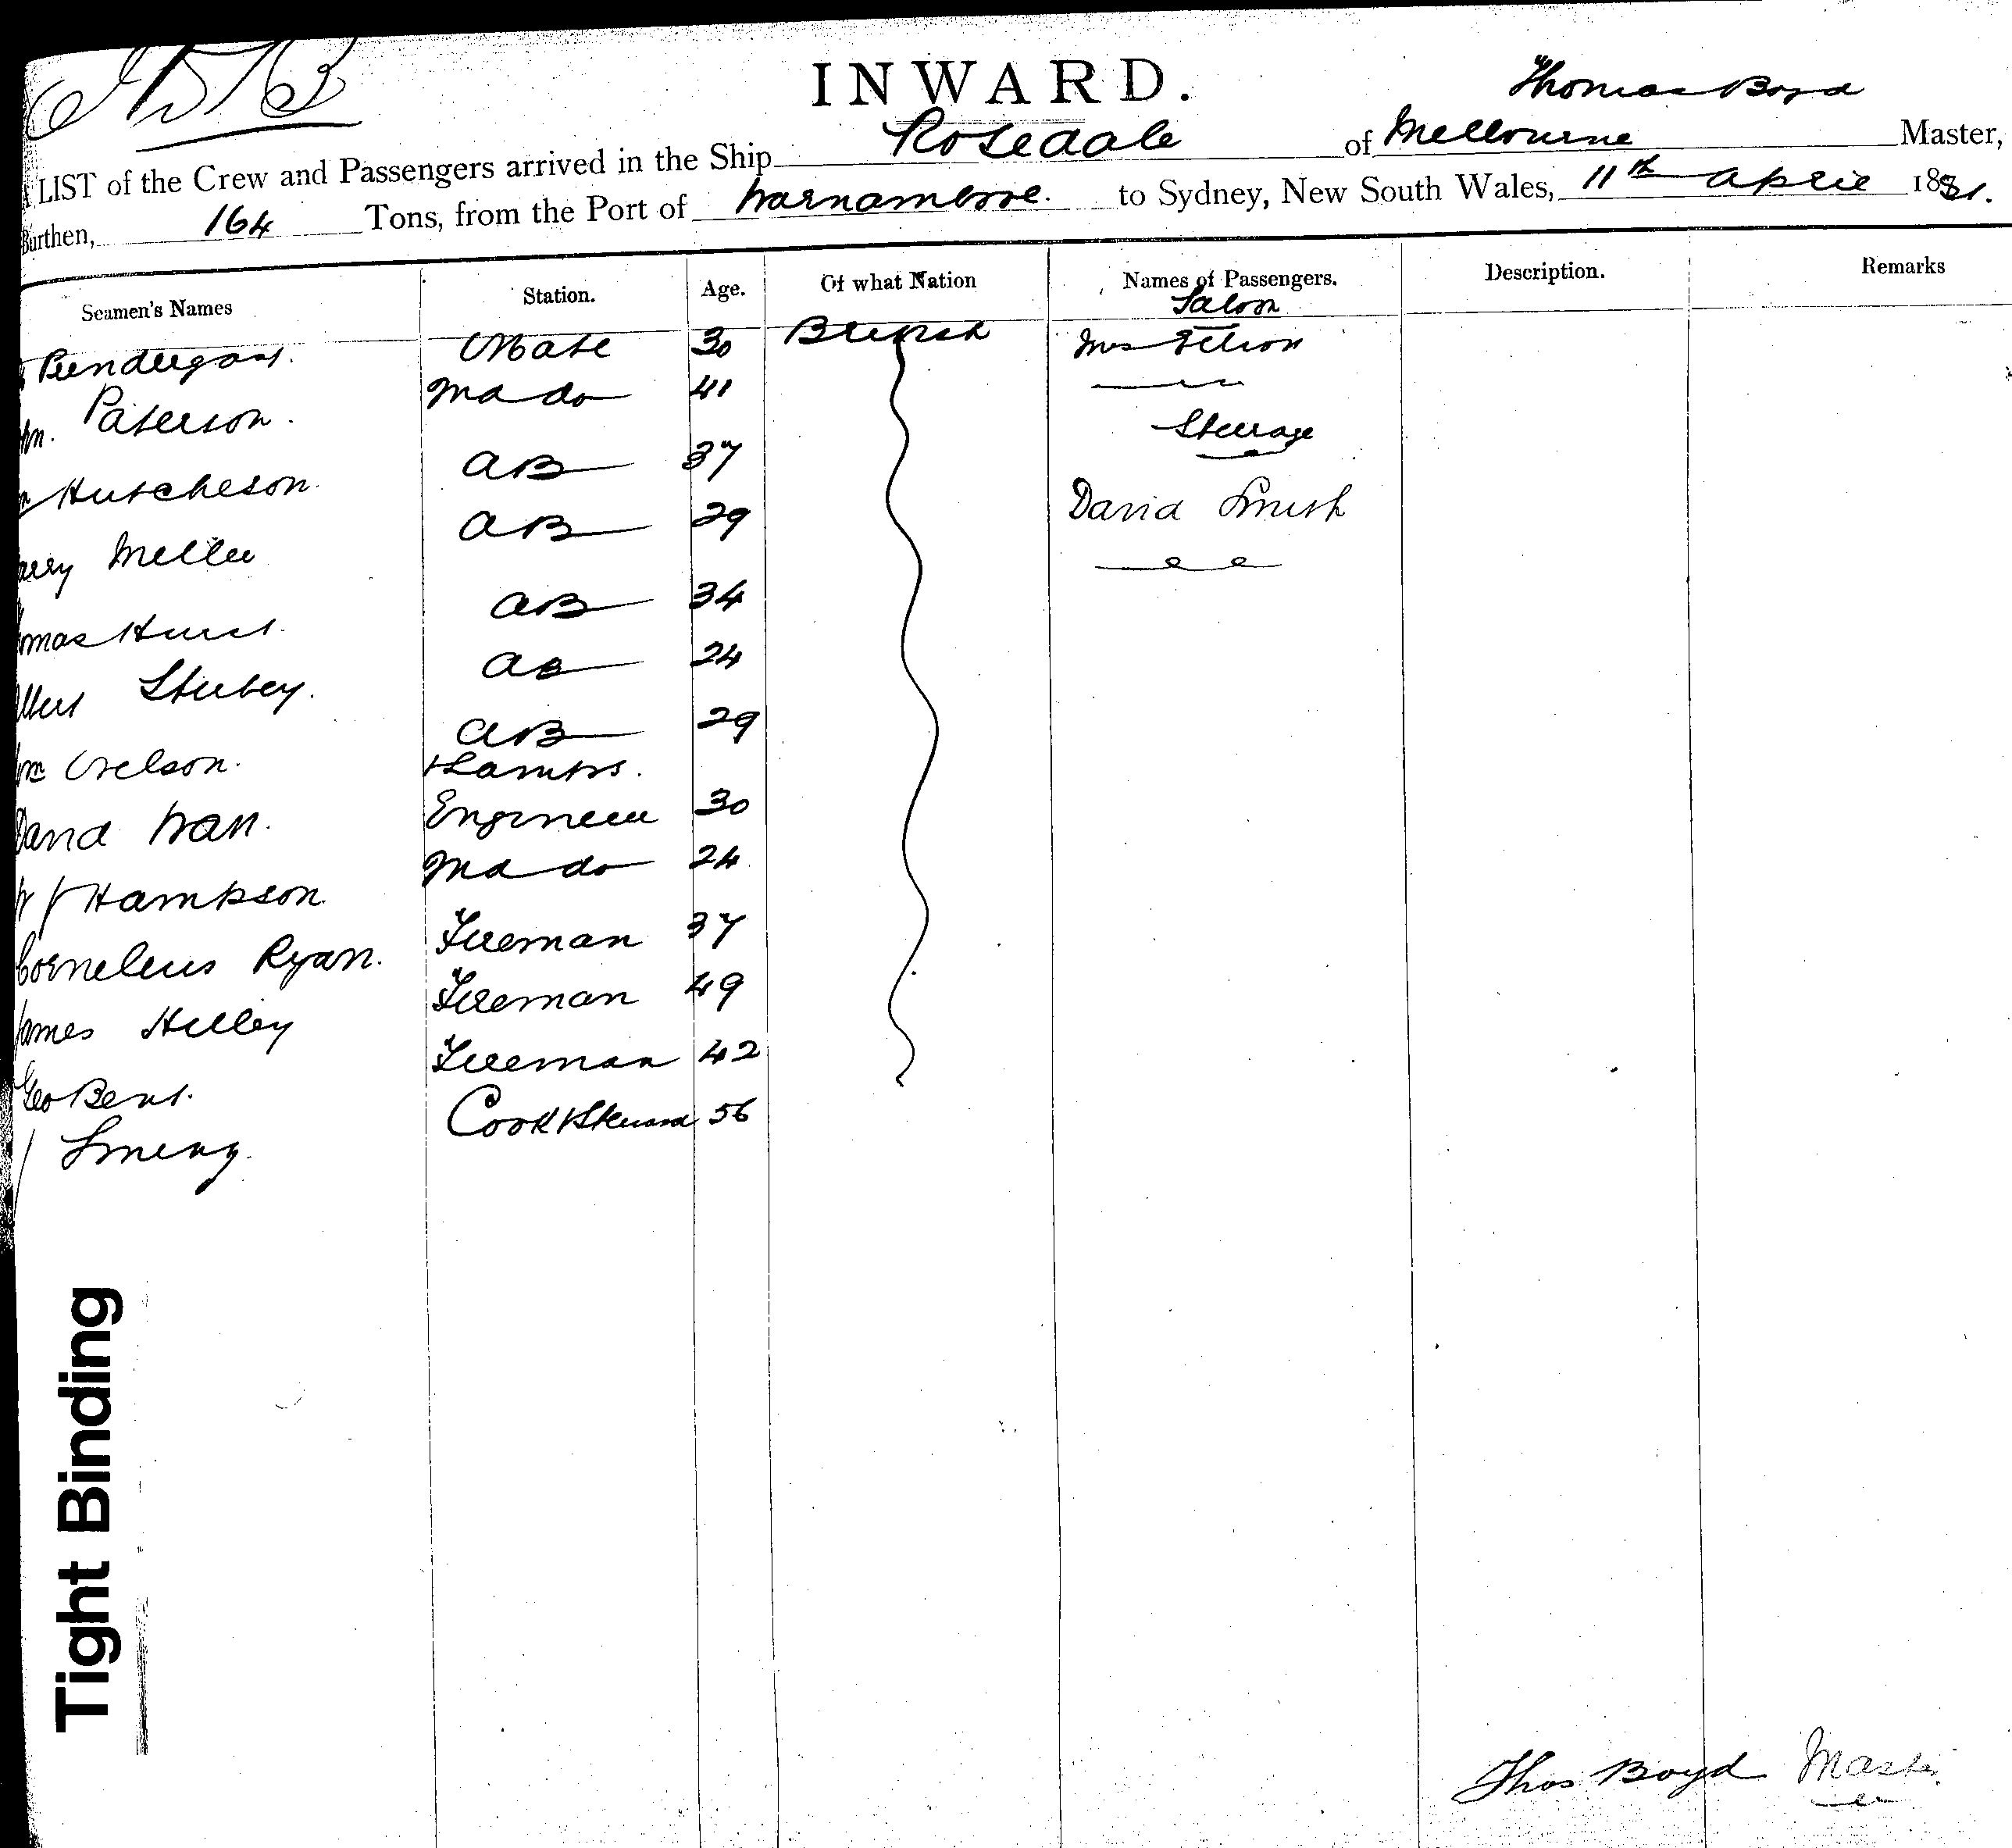 INWARD.
Thomas Boyd
LIST of the Crew and Passengers arrived in the Ship Rosedale of Melbourne Master,
Burthen, 164 Tons, from the Port of Warnambool. to Sydney, New South Wales, 11th April 1881.
Seamen's Names Station. Age. Of what Nation Names of Passengers. Description. Remarks
Saloon
Pendergast. Mate 30 British Mrs
Paterson. 2nd do 41
Steerage
Hutcheson. AB 37
Miller AB 29 David Smith
Hurst. AB 34
Stubey. AB 24
Nelson. AB 29
& Lamps.
David Wan. Engineer 30
Hampson 2nd do 24
Cornelius Ryan. Fireman 37
James Hilley Fireman 49
Geo Bent. Fireman 42
Cook & Steward 56
Tight Binding
Thos Boyd Master